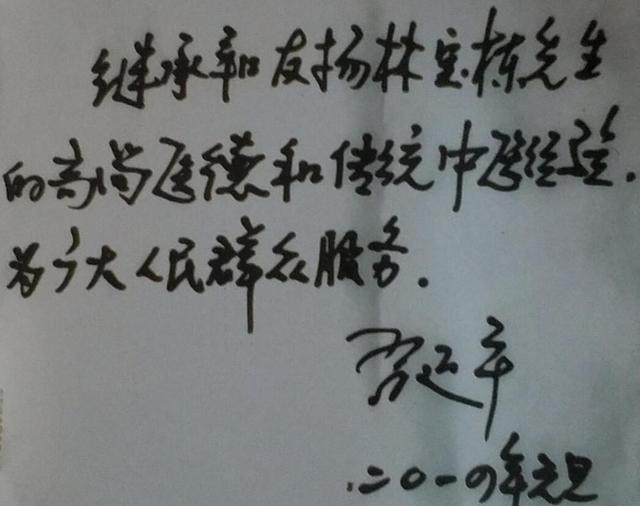 继承和友扬林宝栋先生
的高尚医德和传统中医经验.
为广大人民群众服务.
二0一四年元旦